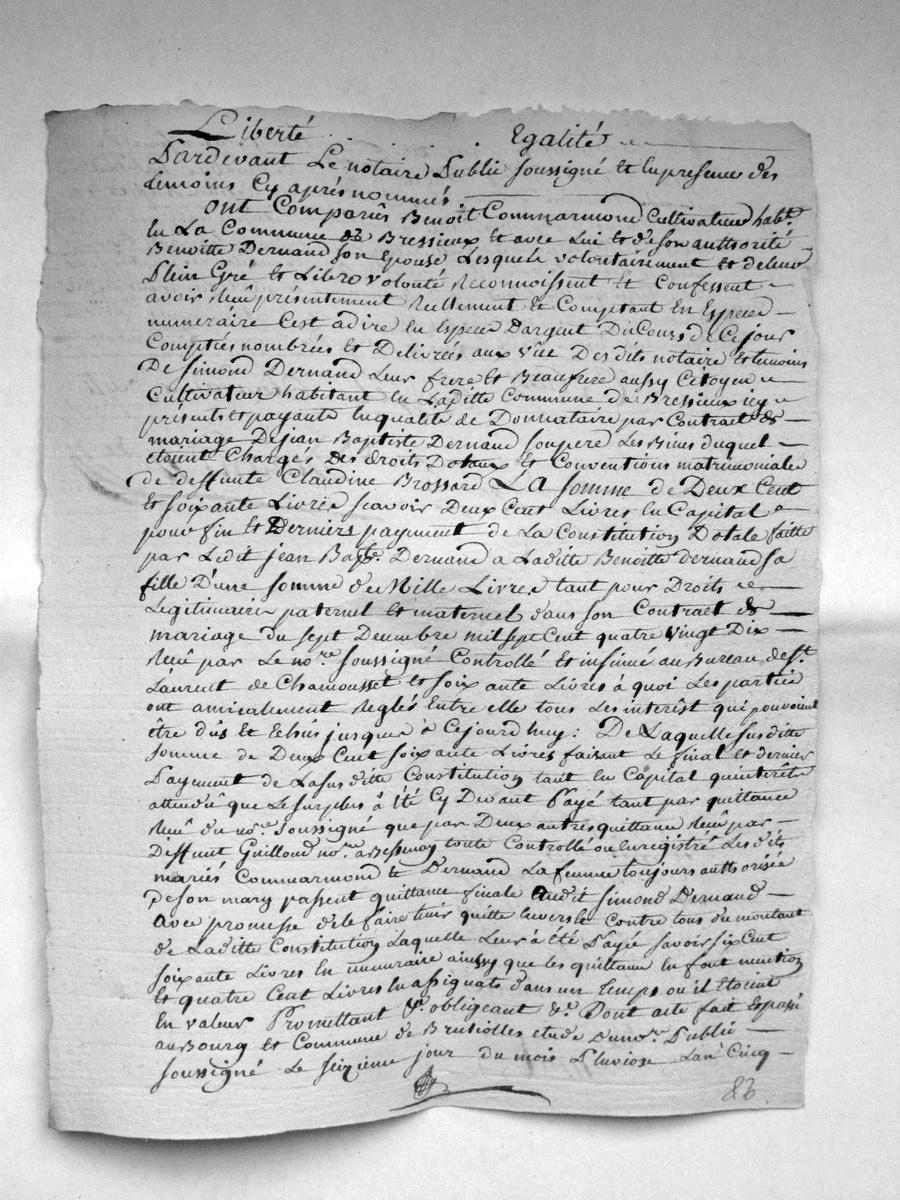 Liberté Egalité
Pardevant Le notaire Public soussigné et en presence des
temoins Cy après nommés.
ont Comparûs Benoit Commarmond Cultivateur habt.
en La Commune de Bressieux et avec Lui et de son authorité
Benoitte Dernand son Epouse Lesquels volontairement et de leur
Plein Gré et Libre volonté Reconnoissent et Confessent
avoir Reçu présentement Reellement et Comptant En Espece
numeraire C'est adire en Espece d'argent Du Cours de Ce jour
Comptées nombrées et Delivrées aux vûe Des dits notaire et temoins
De Simond Dernand Leur frere et Beaufrere aussy Citoyen
Cultivateur habitant en Laditte Commune de Bressieux icy
présents et payants en qualité de Donnataire par Contract de
mariage De jean Baptiste Dernand son pere Les Biens duquel
etoient Chargés Des droits Dotaux et Conventions matrimoniales
de deffunte Claudine Brossard La somme de Deux Cent
et soixante Livres scavoir Deux Cent Livres en Capital
pour fin et Dernier payment de La Constitution Dotale faitte
par Ledit jean Bapte. Dernand a Laditte Benoitte dernand sa
fille D'une somme de Mille Livres tant pour Droits
Légitimaires paternel et maternel dans son Contract de
mariage du sept Decembre mil sept Cent quatre vingt Dix
Reçu par Le nore. soussigné Controllé et insinué au Bureau de St.
Laurent de Chamousset et soixante Livres à quoi Les parties
ont amicalement Reglés Entre elle tous Les interêst qui pouvoient
être dûs et Echus jusques à Cejourdhuy: De Laquelle susditte
somme de Deux Cent soixante Livres faisant Le final et dernier
Payment de La susditte Constitution tant en Capital qu'interêts
attendû que Le surplus à été Cy Devant Payé tant par quittance
Reçue du nore. soussigné que par Deux autres quittances Reçue par
Deffunt Guilloud nore. a Bessenay toute Controllé ou Enregistré Les dits
mariés Commarmond et Dernand La femme toujours authorisée
De son mary passent quittance finale Audit Simond Dernand
Avec promesse de le faire tenir quitte envers et Contre tous du montant
de Laditte Constitution Laquelle Leur à été Payée savoir six Cent
soixante Livres en numeraire ainssy que les quittances en font mention
et quatre Cent Livres en assignats dans un temps ou il etoient
En valeur Promettant &. obligeant &. Dont acte fait et passé
au Bourg et Commune de Brussiolles etude du nore. Public
soussigné Le seizième jour du mois Pluviose Lan Cinq
83